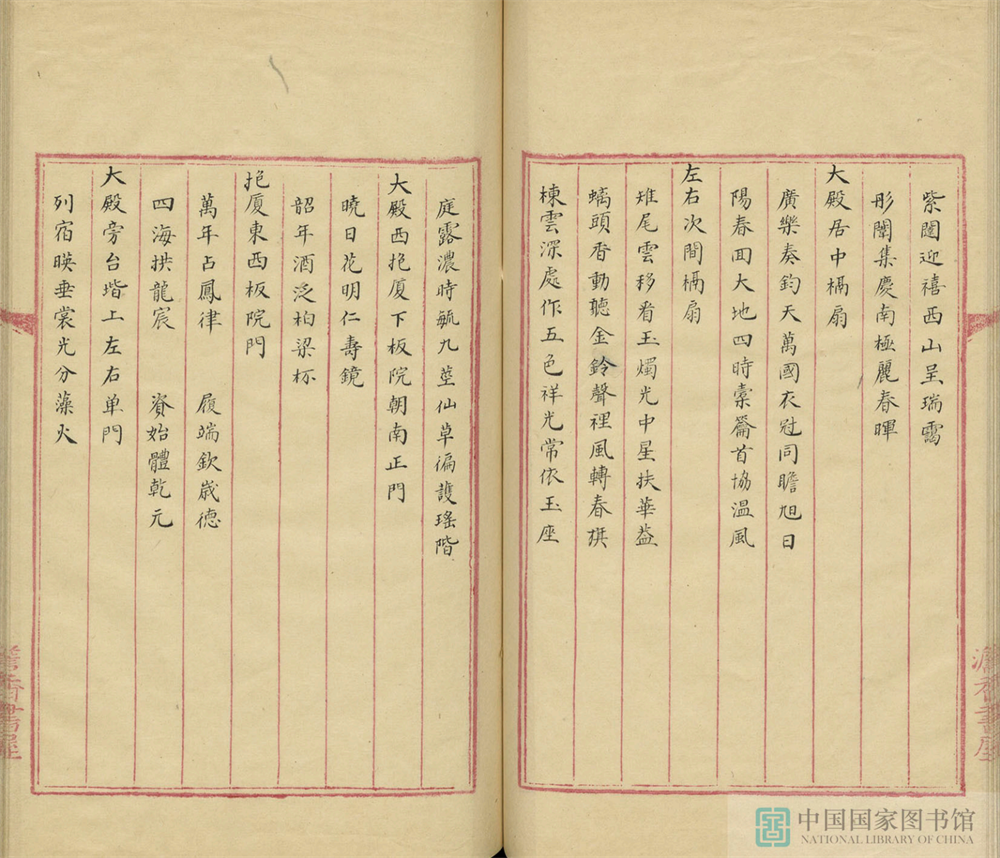 紫閶迎禧西山呈瑞靄
彤闈集慶南極麗春暉
大殿居中槅扇
廣樂奏鈞天萬國衣冠同瞻旭日
陽春回大地四時橐籥首協溫風
左右次間槅扇
雉尾雲移看玉燭光中星扶華蓋
螭頭香動聽金鈴聲裡風轉春旗
棟雲深處作五色祥光常依玉座
庭露濃時毓九莖仙草徧護瑤階
大殿西抱厦下板院朝南正門
曉日花明仁壽鏡
韶年酒泛柏梁杯
抱厦東西板院門
萬年占鳳律 履端欽歲德
四海拱龍宸 資始體乾元
大殿旁台堦上左右单門
列宿暎垂裳光分藻火
澹香書屋
中国国家图书馆
NATIONAL LIBRARY OF CHINA